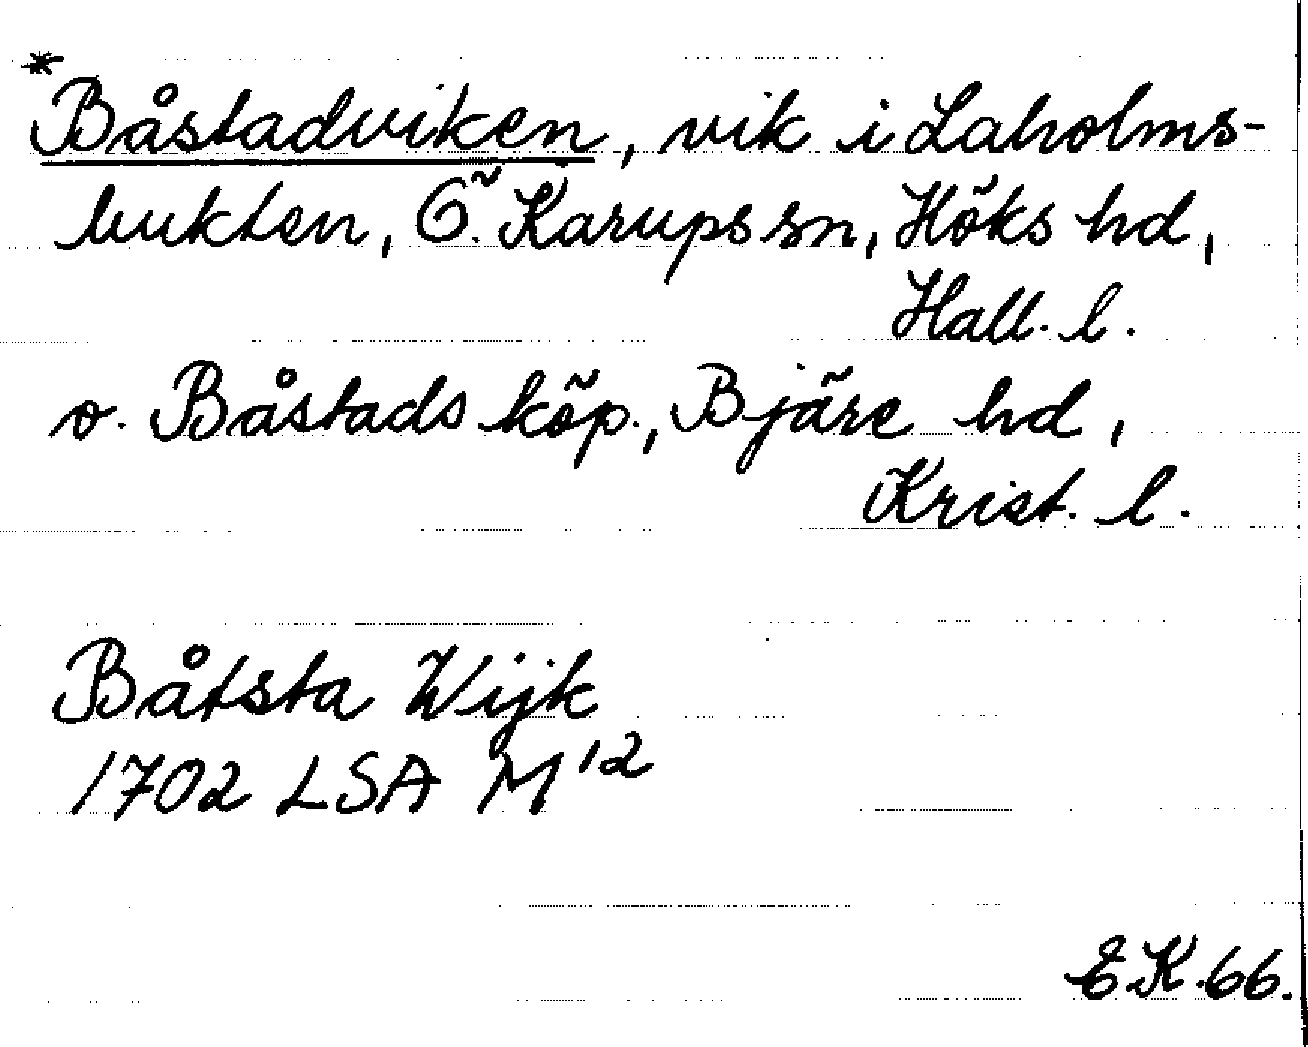 *
Båstadviken, vik i Laholms-
bukten, Ö. Karups sn, Höks hd,
Hall. l.
o. Båstads köp., Bjäre hd,
Krist. l.
Båtsta Wijk
1702 LSA M12
E.K.66.